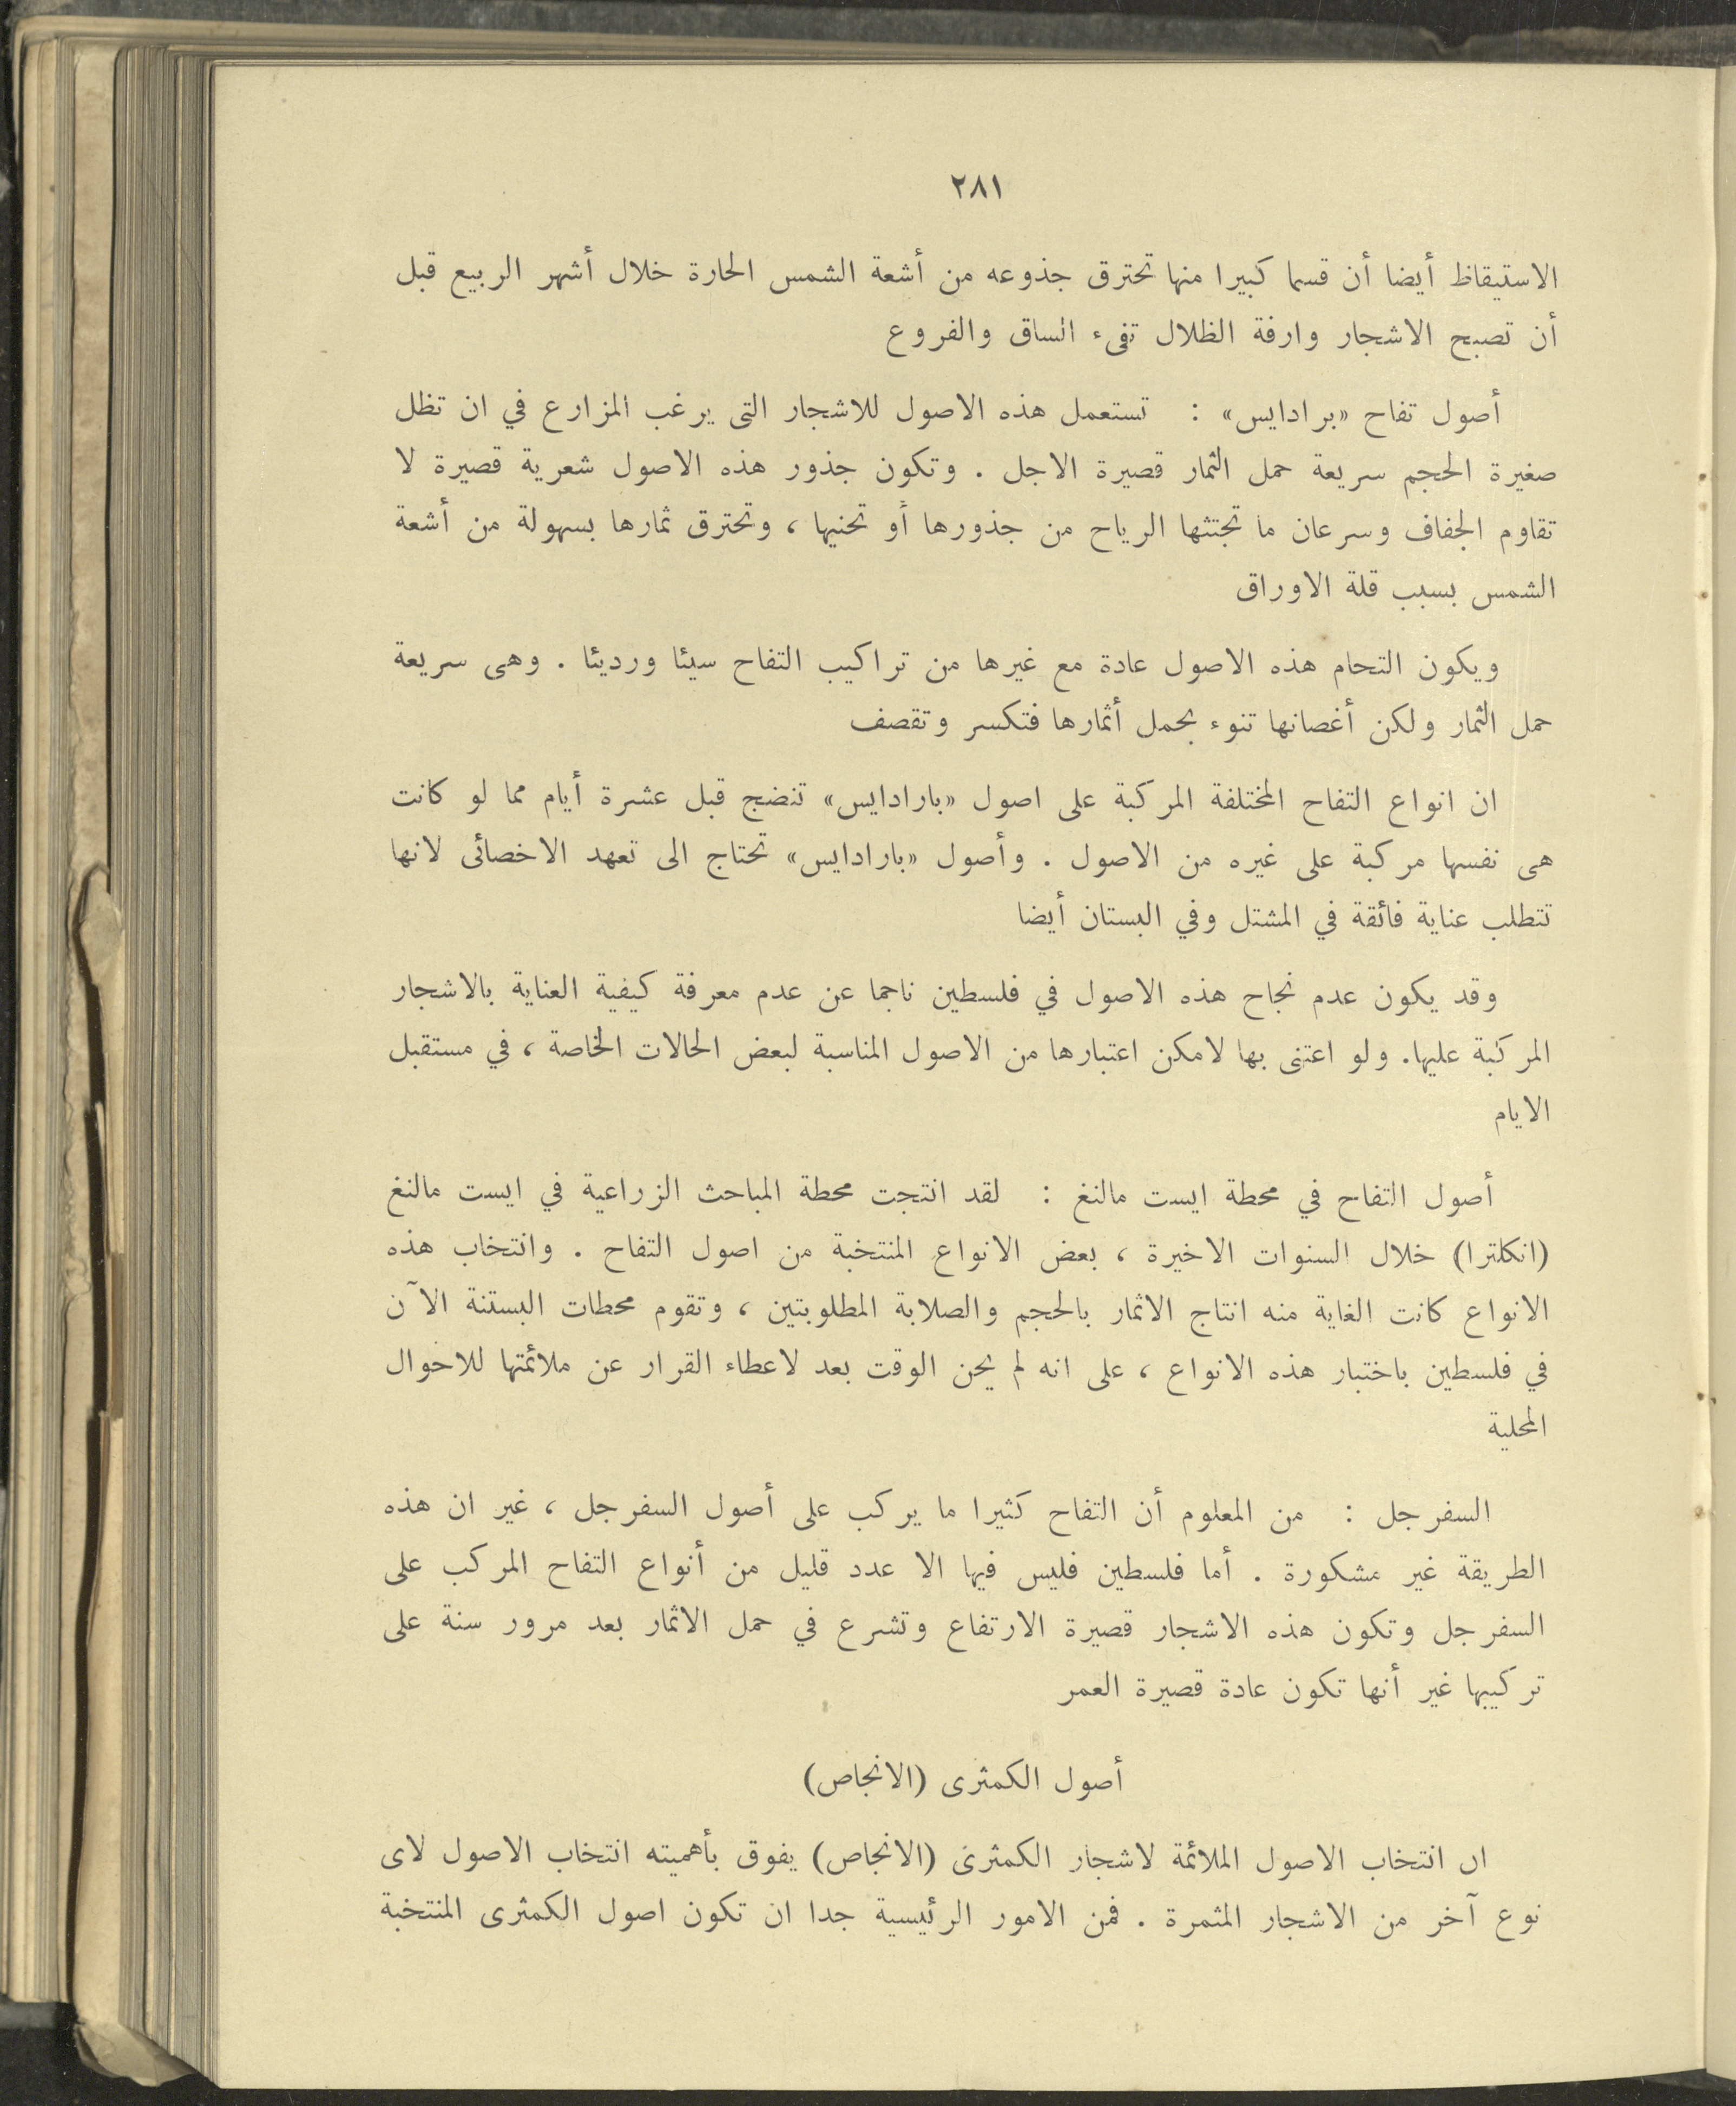 ٢٨١
الاستيقاظ أيضا أن قسما كبيرا منها تحترق جذوعه من أشعة الشمس الحارة خلال أشهر الربيع قبل
أن تصبح الاشجار وارفة الظلال تفىء الساق والفروع
أصول تفاح «برادايس» : تستعمل هذه الاصول للاشجار التى يرغب المزارع في ان تظل
صغيرة الحجم سريعة حمل الثمار قصيرة الاجل . وتكون جذور هذه الاصول شعرية قصيرة لا
تقاوم الجفاف وسرعان ما تجتثها الرياح من جذورها أو تحنيها ، وتحترق ثمارها بسهولة من أشعة
الشمس بسبب قلة الاوراق
ويكون التحام هذه الاصول عادة مع غيرها من تراكيب التفاح سيئا ورديئا . وهى سريعة
حمل الثمار ولكن أغصانها تنوء بحمل أثمارها فتكسر وتقصف
ان انواع التفاح المختلفة المركبة على اصول «بارادايس» تنضج قبل عشرة أيام مما لو كانت
هى نفسها مركبة على غيره من الاصول . وأصول «بارادايس» تحتاج الى تعهد الاخصائى لانها
تتطلب عناية فائقة في المشتل وفي البستان أيضا
وقد يكون عدم نجاح هذه الاصول في فلسطين ناجما عن عدم معرفة كيفية العناية بالاشجار
المركبة عليها. ولو اعتنى بها لامكن اعتبارها من الاصول المناسبة لبعض الحالات الخاصة ، في مستقبل
الايام
أصول التفاح في محطة ايست مالنغ : لقد انتجت محطة المباحث الزراعية في ايست مالنغ
(انكلترا) خلال السنوات الاخيرة ، بعض الانواع المنتخبة من اصول التفاح . وانتخاب هذه
الانواع كانت الغاية منه انتاج الاثمار بالحجم والصلابة المطلوبتين ، وتقوم محطات البستنة الآن
في فلسطين باختبار هذه الانواع ، على انه لم يحن الوقت بعد لاعطاء القرار عن ملائمتها للاحوال
المحلية
السفرجل : من المعلوم أن التفاح كثيرا ما يركب على أصول السفرجل ، غير ان هذه
الطريقة غير مشكورة . أما فلسطين فليس فيها الا عدد قليل من أنواع التفاح المركب على
السفرجل وتكون هذه الاشجار قصيرة الارتفاع وتشرع في حمل الاثمار بعد مرور سنة على
تركيبها غير أنها تكون عادة قصيرة العمر
أصول الكمثرى (الانجاص)
ان انتخاب الاصول الملائمة لاشجار الكمثرى (الانجاص) يفوق بأهميته انتخاب الاصول لاى
نوع آخر من الاشجار المثمرة . فمن الامور الرئيسية جدا ان تكون اصول الكمثرى المنتخبة